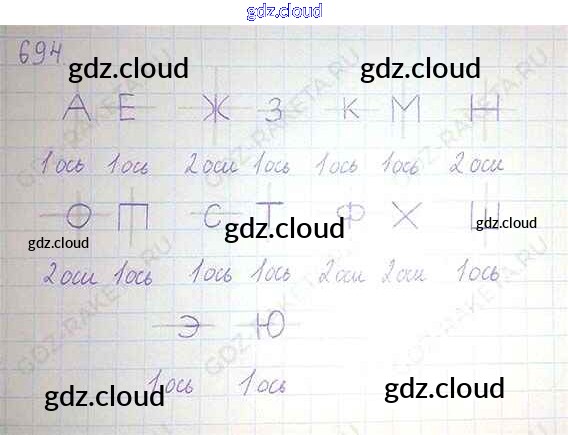 gdz.cloud
694
gdz.cloud gdz.cloud
А Е Ж З К М Н
1 ось 1 ось 2 оси 1 ось 1 ось 1 ось 2 оси
О П С Т Ф Х Ш
gdz.cloud gdz.cloud gdz.cloud
2 оси 1 ось 1 ось 1 ось 2 оси 2 оси 1 ось
Э Ю
1 ось 1 ось
gdz.cloud gdz.cloud
GDZ-RAKETA.RU